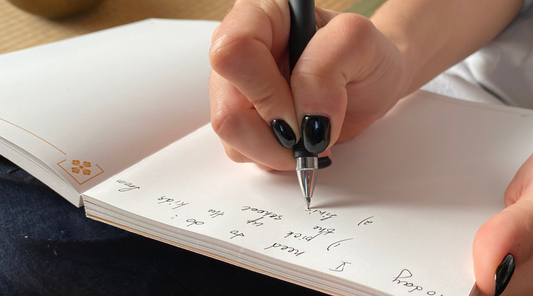 Today
I need to do:
1) pick up the kids from
the school
2) fini